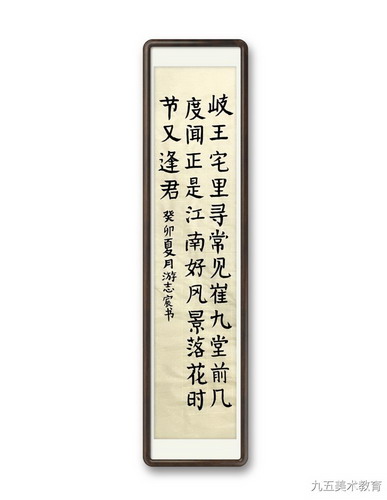 岐王宅里寻常见崔九堂前几
度闻正是江南好风景落花时
节又逢君
癸卯夏月游志宸书
九五美术教育